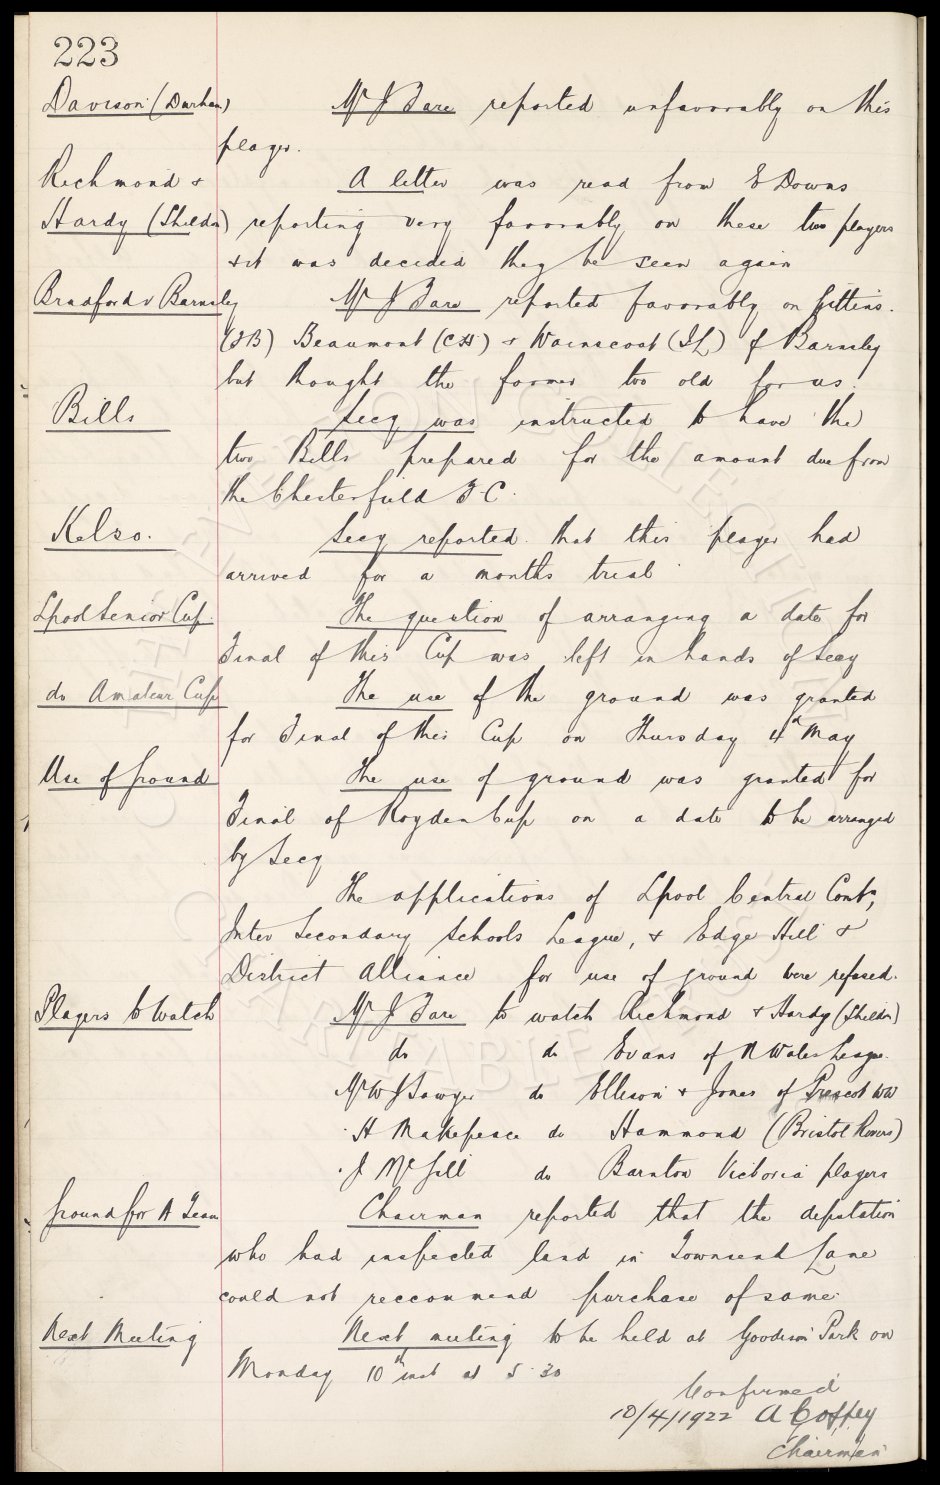 223
Davison (Durham) Mr J Fare reported unfavorably on this
player.
Richmond & A letter was read from E Downs
Hardy (Shildon) reporting very favorably on these two players
& it was decided they be seen again
Bradford v Barnsley Mr J Fare reported favorably on Gittins.
(JB) Beaumont (CH) & Wainscoat (IL) of Barnsley
but thought the former too old for us.
Bills Secy was instructed to have the
two Bills prepared for the amount due from
the Chesterfield F C.
Kelso. Secy reported that this player had
arrived for a months trial
Lpool Senior Cup. The question of arranging a date for
Final of this Cup was left in hands of Secy
do Amateur Cup The use of the ground was granted
for Final of this Cup on Thursday 4th May
Use of Ground The use of ground was granted for
Final of Royden Cup on a date to be arranged
by Secy
The applications of Lpool Central Conty,
Inter Secondary Schools League, & Edge Hill &
District Alliance for use of ground were refused.
Players to Watch Mr J Fare to watch Richmond & Hardy (Shildon)
do do Evans of N Wales League.
Mr W J Sawyer do Ellison & Jones of Prescot
H Makepeace do Hammond (Bristol Rovers)
J McGill do Barnton Victoria players
Ground for A Team Chairman reported that the deputation
who had inspected land in Townsend Lane
could not reccommend purchase of same.
Next Meeting Next meeting to be held at Goodison Park on
Monday 10th inst at 5.30
Confirmed
10/4/1922 A Coffey
Chairman